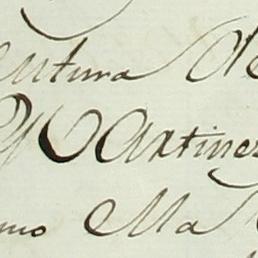 utura de
Martinez
mo Ma